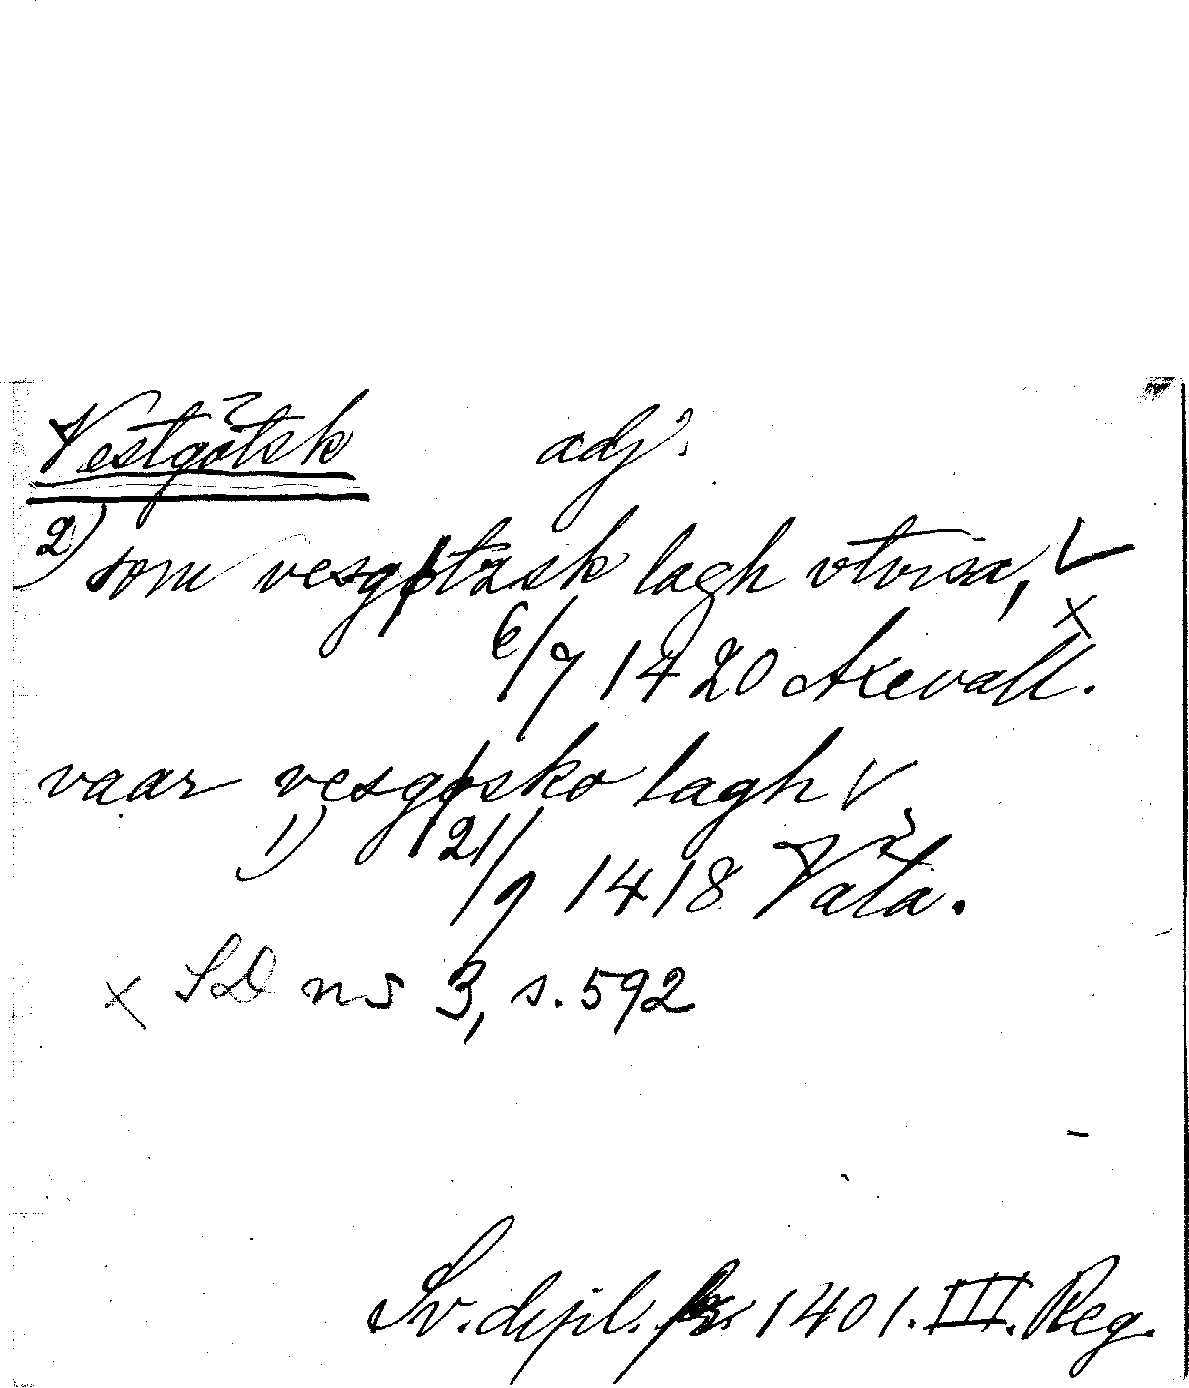 Vestgötsk adj.
2) som vesgøtzsk lagh vtvisa, V
6/7 1420 Axevall. x
vaar vesgøsko lagh V
1) 21/9 1418 Våla.
x SD ns 3, s. 592
Sv. dipl. fr. 1401. III. Reg.